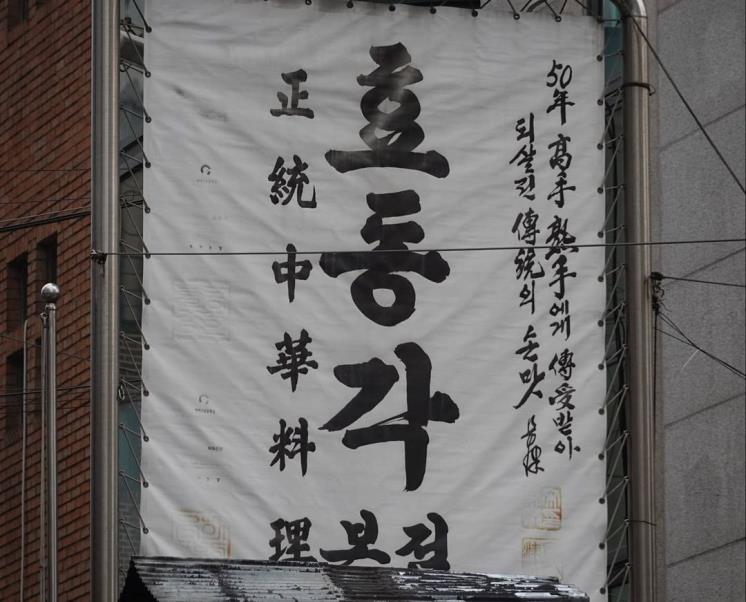 50年 高手 熟手에게 傳受받아
되살린 傳統의 손맛
효동각 본점
正統中華料理